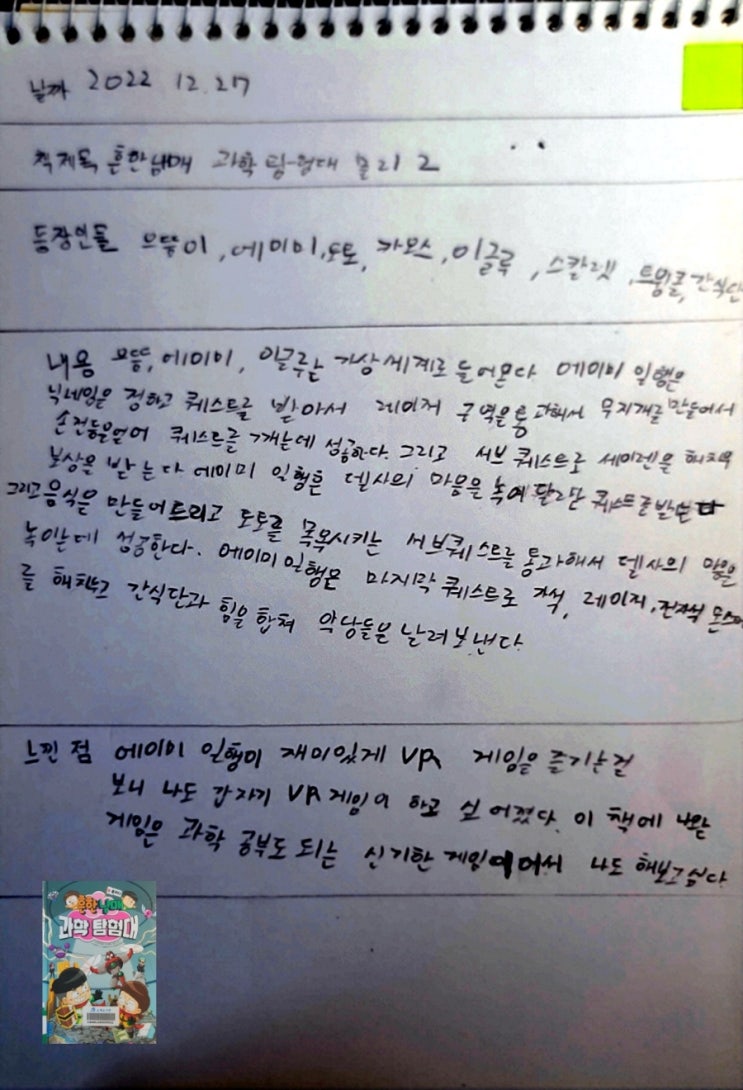 날짜 2022 12.27
책제목 흔한남매 과학 탐험대 물리 2
등장인물 으뜸이, 에이미, 도토, 카오스, 이글루, 스칼렛, 트윙클, 간식단
내용 으뜸, 에이미, 이글루는 가상세계로 들어온다 에이미 일행은
닉네임을 정하고 퀘스트를 받아서 레이저 구역을 통과해서 무지개를 만들어서
손전등을 얻어 퀘스트를 깨는데 성공한다. 그리고 서브 퀘스트로 세이렌을 해치워
보상을 받는다 에이미 일행은 델사의 마음을 녹여 달라는 퀘스트를 받는다
그리고 음식을 만들어드리고 도토를 목욕시키는 서브퀘스트를 통과해서 델사의 마음을
녹이는데 성공한다. 에이미 일행은 마지막 퀘스트로 자석, 레이저, 전자석 몬스터
를 해치우고 간식단과 힘을 합쳐 악당들을 날려보낸다
느낀 점 에이미 일행이 재미있게 VR 게임을 즐기는걸
보니 나도 갑자기 VR 게임이 하고 싶어졌다. 이 책에 나온
게임은 과학 공부도 되는 신기한 게임이어서 나도 해보고싶다
흔한남매
과학 탐험대